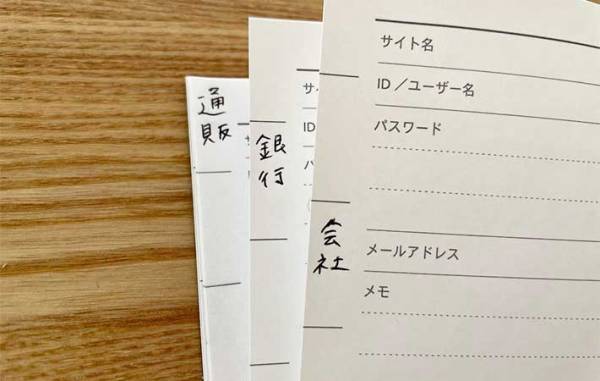 通販
サ
ID
パ
銀行
サイ
ID
パ
会社
サイト名
ID／ユーザー名
パスワード
メールアドレス
メモ